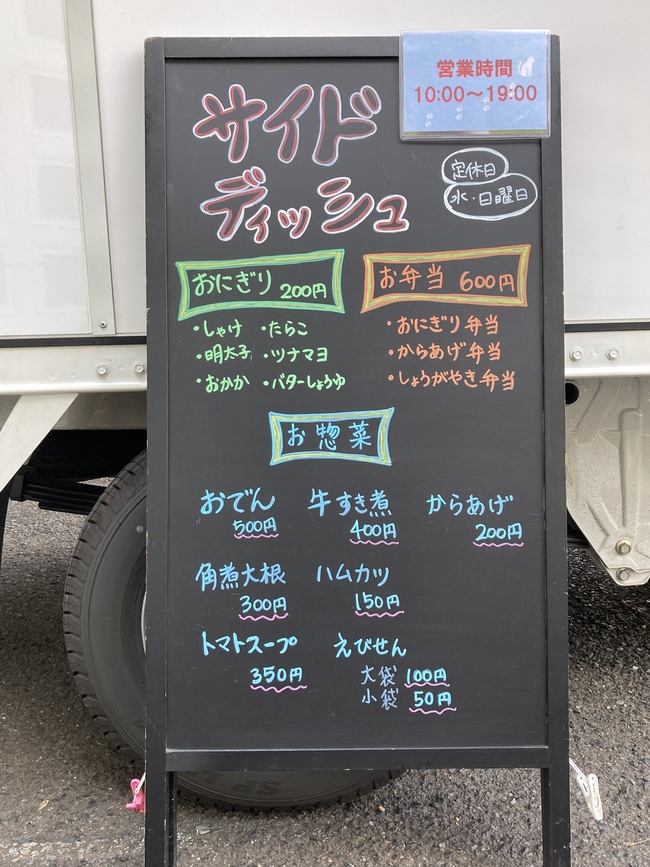 営業時間
10:00〜19:00
サイド
ディッシュ
定休日
水・日曜日
おにぎり 200円
・しゃけ ・たらこ
・明太子 ・ツナマヨ
・おかか ・バターしょうゆ
お弁当 600円
・おにぎり弁当
・からあげ弁当
・しょうがやき弁当
お惣菜
おでん 牛すき煮 からあげ
500円 400円 200円
角煮大根 ハムカツ
300円 150円
トマトスープ えびせん
350円 大袋 100円
小袋 50円